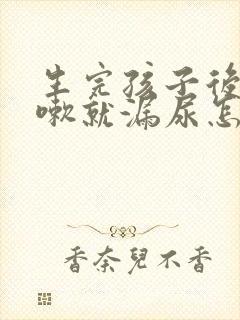 生完孩子後
嗽就漏尿怎
香奈兒不香